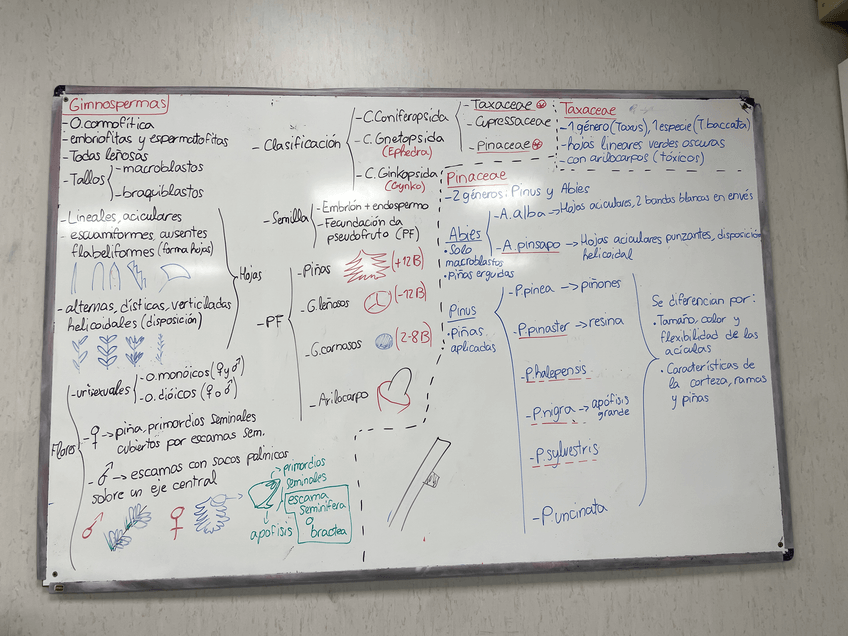 Gimnospermas
- O. cormofítica
- embriofitas y espermatofitas
- Todas leñosas
- Tallos
- macroblastos
- braquiblastos
- Lineales, aciculares
- escuamiformes, ausentes
flabeliformes (forma hojas)
- alternas, dísticas, verticiladas
helicoidales (disposición)
Hojas
Flores
- unisexuales
- O. monóicos (♀ y ♂)
- O. dióicos (♀ o ♂)
- ♀ → piña, primordios seminales
cubiertos por escamas sem.
- ♂ → escamas con sacos polínicos
sobre un eje central
♂
♀
primordios
seminales
escama
seminífera
o
bractea
apófisis
- Clasificación
- C. Coniferopsida
- C. Gnetopsida
(Ephedra)
- C. Ginkopsida
(Gynko)
- Taxaceae
- Cupressaceae
- Pinaceae
- Semilla
- Embrión + endospermo
- Fecundación da
pseudofruto (PF)
- PF
- Piñas
(+12B)
- G. leñosos
(-12B)
- G. carnosos
(2-8B)
- Arilocarpo
Taxaceae
- 1 género (Taxus), 1 especie (T. baccata)
- hojas lineares verdes oscuras
- con arilocarpos (tóxicos)
Pinaceae
- 2 géneros: Pinus y Abies
Abies
• Solo
macroblastos
• Piñas erguidas
- A. alba → Hojas aciculares, 2 bandas blancas en envés
- A. pinsapo → Hojas aciculares punzantes, disposición
helicoidal
Pinus
• Piñas
aplicadas
- P. pinea → piñones
- P. pinaster → resina
- P. halepensis
- P. nigra → apófisis
grande
- P. sylvestris
- P. uncinata
Se diferencian por:
• Tamaño, color y
flexibilidad de las
acículas
• Características de
la corteza, ramas
y piñas